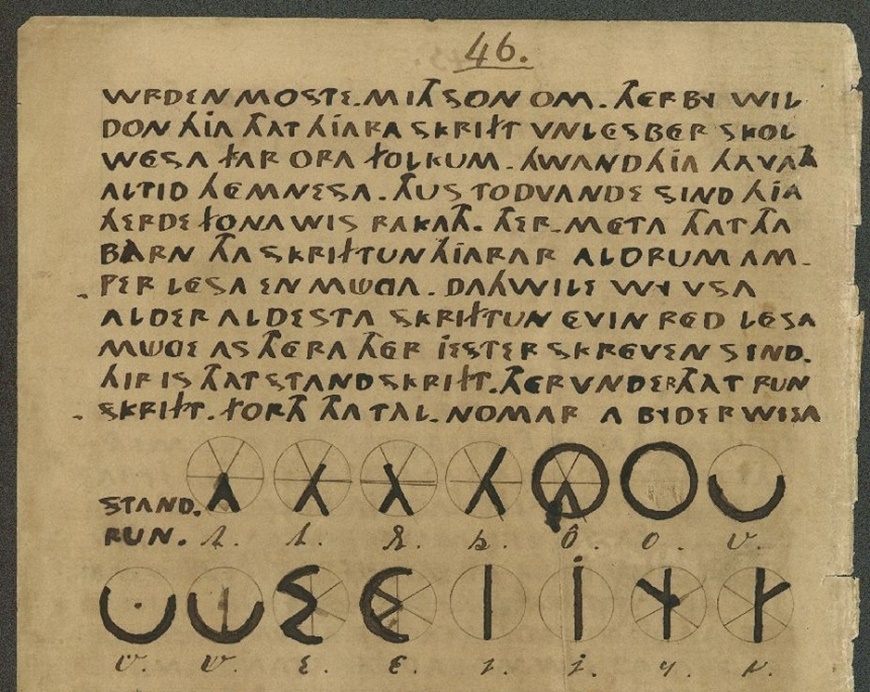 46.
WRDEN MOSTE. MITH SON OM. THER BY WIL
DON HIA THAT HIARA SKRIFT VNLESBER SKOL
WESA FAR ORA FOLKUM. HWAND HIA HAVATH
ALTID HEMNESA. THUS TODVANDE SIND HIA
HERDE FONA WIS RAKATH. THER-META THAT THA
BARN THA SKRIFTUN HIARAR ALDRUM AM-
PER LESA EN MÜGA. DAHWILE WY VSA
ALDER ALDESTA SKRIFTUN EVIN RED LESA
MÜGE AS THERA THER JESTER SKREVEN SIND.
HIR IS THAT STANDSKRIFT. THERVNDER THAT RUN
SKRIFT. FORTH THA TAL-NOMAR A BYDER WISA
STAND.
RUN.